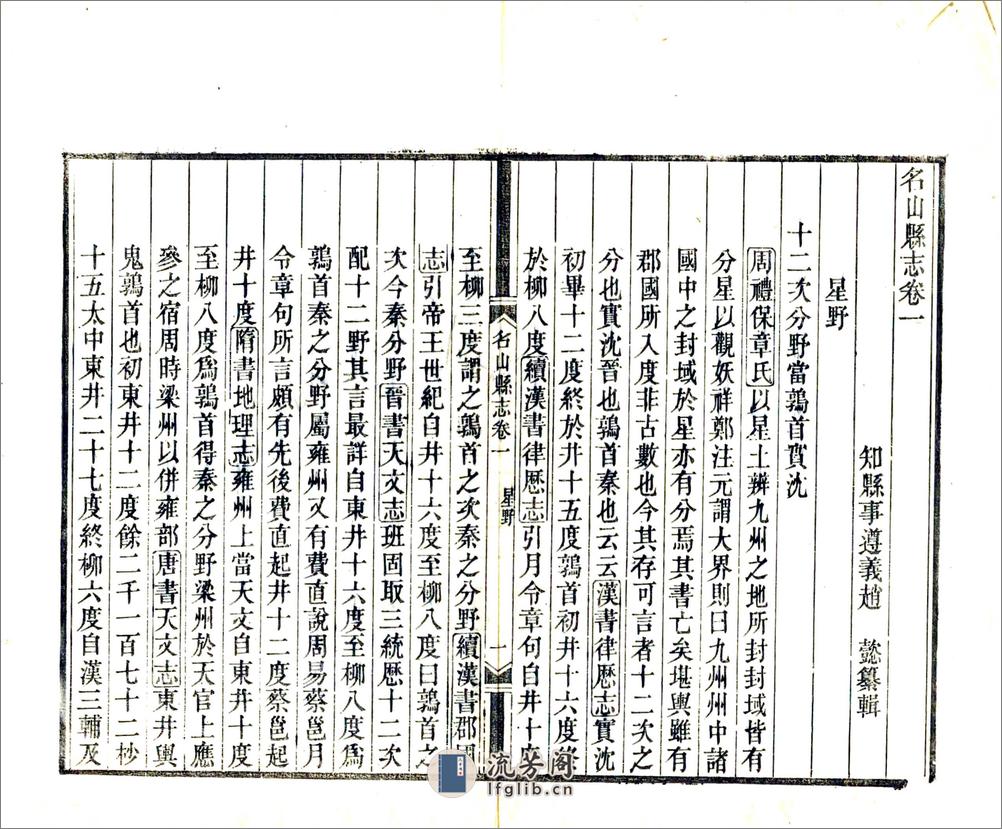 名山縣志卷一
知縣事遵義趙　懿纂輯
星野
十二次分野當鶉首實沈
周禮保章氏以星土辨九州之地所封封域皆有
分星以觀妖祥鄭注元謂大界則曰九州州中諸
國中之封域於星亦有分焉其書亡矣堪輿雖有
郡國所入度非古數也今其存可言者十二次之
分也實沈晉也鶉首秦也云云漢書律歷志實沈
初畢十二度終於井十五度鶉首初井十六度終
於柳八度續漢書律歷志引月令章句自井十度
名山縣志卷一　星野　一
至柳三度謂之鶉首之次秦之分野續漢書郡國
志引帝王世紀自井十六度至柳八度曰鶉首之
次今秦分野晉書天文志班固取三統歷十二次
配十二野其言最詳自東井十六度至柳八度爲
鶉首秦之分野屬雍州又有費直說周易蔡邕月
令章句所言頗有先後費直起井十二度蔡邕起
井十度隋書地理志雍州上當天文自東井十度
至柳八度爲鶉首得秦之分野梁州於天官上應
參之宿周時梁州以併雍部唐書天文志東井輿
鬼鶉首也初東井十二度餘二千一百七十二杪
十五太中東井二十七度終柳六度自漢三輔及
流芳閣
lfglib.cn